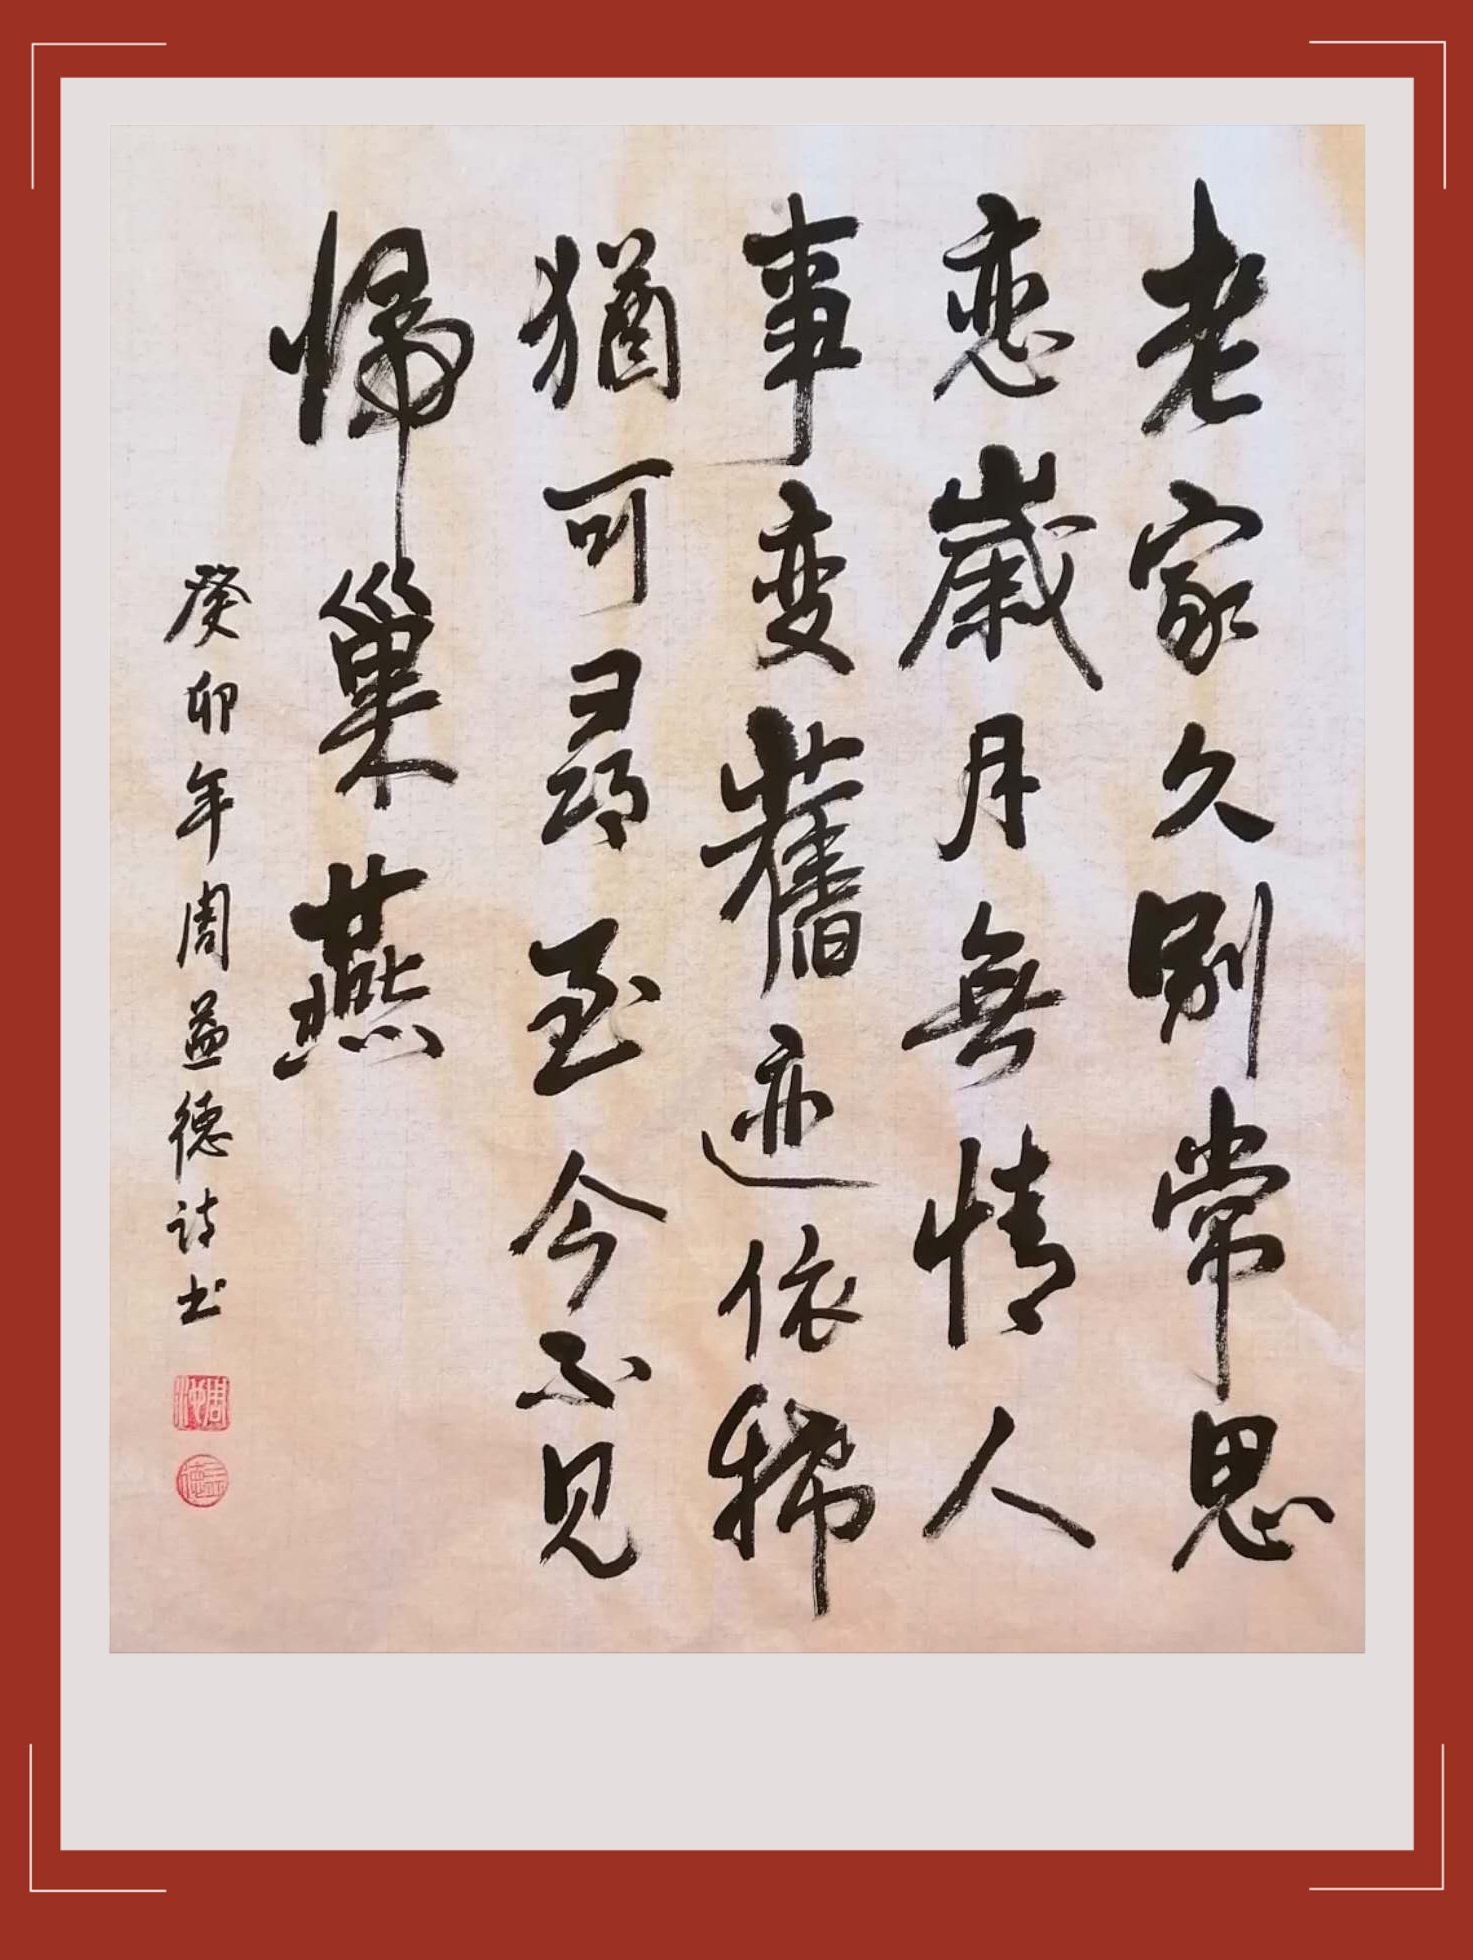 老家久别常思
恋歲月無情人
事变舊迹依稀
猶可尋至今不見
歸巢燕
癸卯年周益德诗书
周池
益德